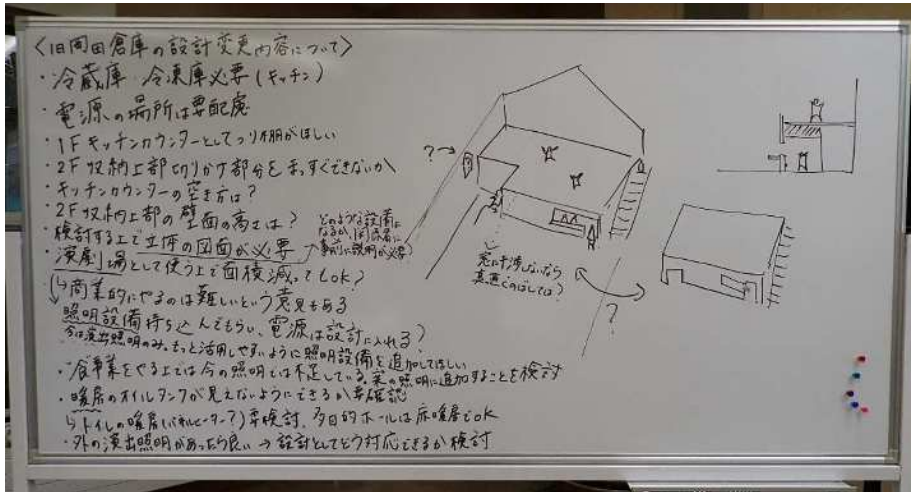 〈旧岡田倉庫の設計変更内容について〉
・冷蔵庫・冷凍庫必要(キッチン)
・電源の場所は要配慮
・1Fキッチンカウンターとしてつり棚がほしい
・2F収納上部切りかけ部分をまっすぐできないか
・キッチンカウンターの空き方は?
・2F収納上部の壁面の高さは?
・検討する上で立体の図面が必要
どのような設備に
なるか、関係者に
事前に説明が必要
・演劇場として使う上で面積減ってもOK?
↳商業的にやるのは難しいという意見もある
照明設備持ち込んでもらい、電源は設計に入れる
今は演出照明のみ。もっと活用しやすいように照明設備を追加してほしい
・食事業をやる上では今の照明では不足している。案の照明に追加することを検討
・暖房のオイルタンクが見えないようにできるか要確認
↳トイレの暖房(パネルヒーター?)要検討、多目的ホールは床暖房でOK
・外の演出照明があったら良い→設計としてどう対応できるか検討
?→
窓に干渉しないなら
真直ぐのばしては?
?